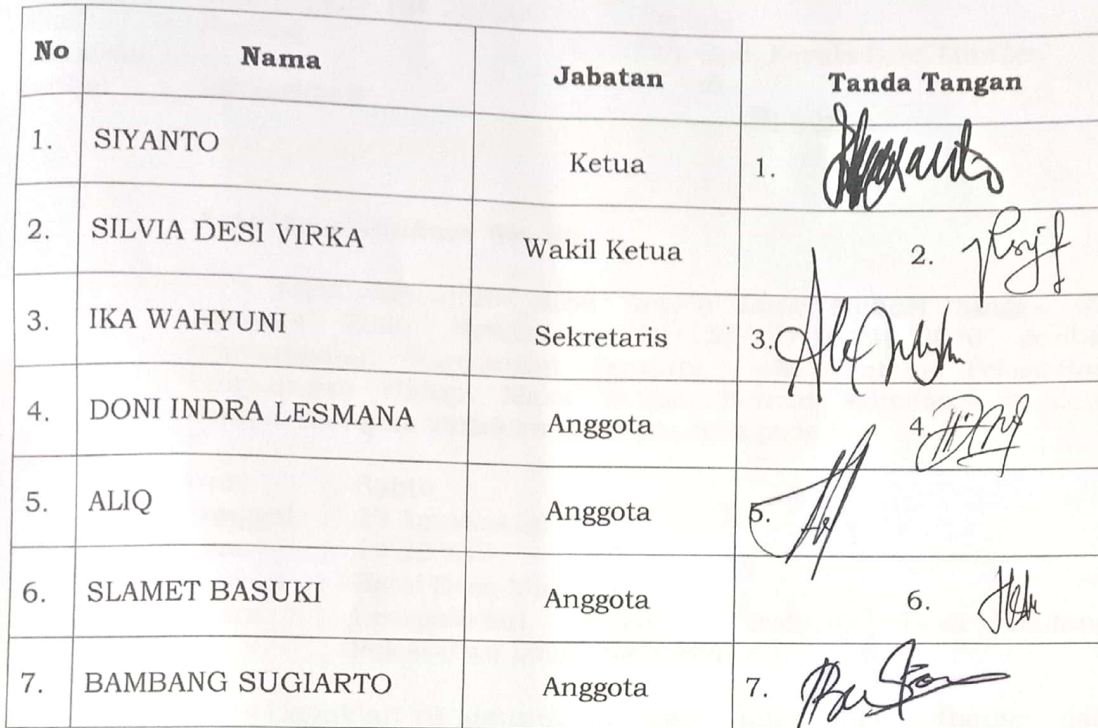 No Nama Jabatan Tanda Tangan
1. SIYANTO Ketua 1.
2. SILVIA DESI VIRKA Wakil Ketua 2.
3. IKA WAHYUNI Sekretaris 3.
4. DONI INDRA LESMANA Anggota 4.
5. ALIQ Anggota 5.
6. SLAMET BASUKI Anggota 6.
7. BAMBANG SUGIARTO Anggota 7.